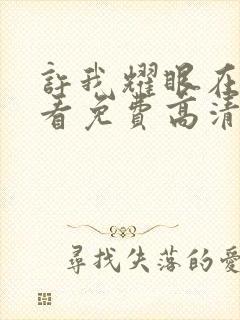 許我耀眼在
看免費高清
尋找失落的愛